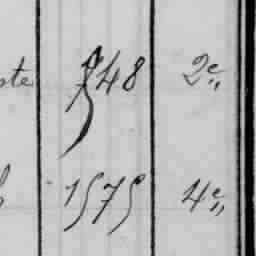 pte 848 2e„
1575 4e„